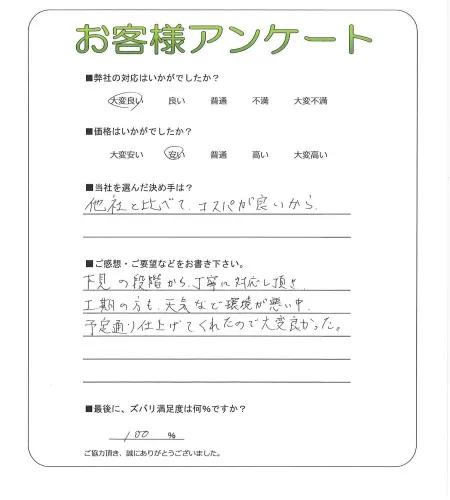 お客様アンケート
■弊社の対応はいかがでしたか？
大変良い 良い 普通 不満 大変不満
■価格はいかがでしたか？
大変安い 安い 普通 高い 大変高い
■当社を選んだ決め手は？
他社と比べて、コスパが良いから、
■ご感想・ご要望などをお書き下さい。
下見の段階から、丁寧に対応し頂き、
工期の方も、天気など環境が悪い中、
予定通り仕上げてくれたので大変良かった。
■最後に、ズバリ満足度は何%ですか？
100 %
ご協力頂き、誠にありがとうございました。